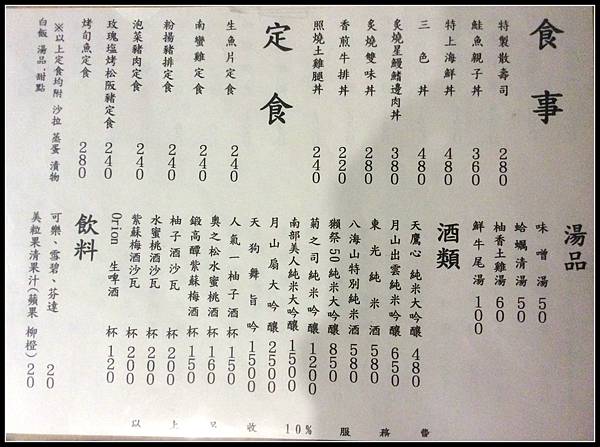 食事
特製散壽司 280
鮭魚親子丼 360
特上海鮮丼 480
三色丼 480
炙燒星鰻鰭邊肉丼 380
炙燒雙味丼 280
香煎牛排丼 220
照燒土雞腿丼 240
定食
生魚片定食 240
南蠻雞定食 240
粉揚豬排定食 240
泡菜豬肉定食 240
玫瑰塩烤松阪豬定食 240
烤旬魚定食 280
※以上定食均附 沙拉 蒸蛋 漬物
白飯 湯品 甜點
湯品
味噌湯 50
蛤蠣清湯 50
柚香土雞湯 60
鮮牛尾湯 100
酒類
天鷹心 純米大吟釀 480
月山出雲純米吟釀 650
東光純米酒 580
八海山特別純米酒 580
獺祭50純米大吟釀 850
菊之司純米吟釀 1200
南部美人純米大吟釀 1500
月山扇大吟釀 2500
天狗舞旨吟 1500
人氣一柚子酒 杯150
奧之松水蜜桃酒 杯160
鍛高譚紫蘇梅酒 杯150
柚子酒沙瓦 杯200
水蜜桃酒沙瓦 杯200
紫蘇梅酒沙瓦 杯200
Orion 生啤酒 杯120
飲料
可樂、雪碧、芬達 20
美粒果清果汁(蘋果 柳橙) 20
以上另收10%服務費